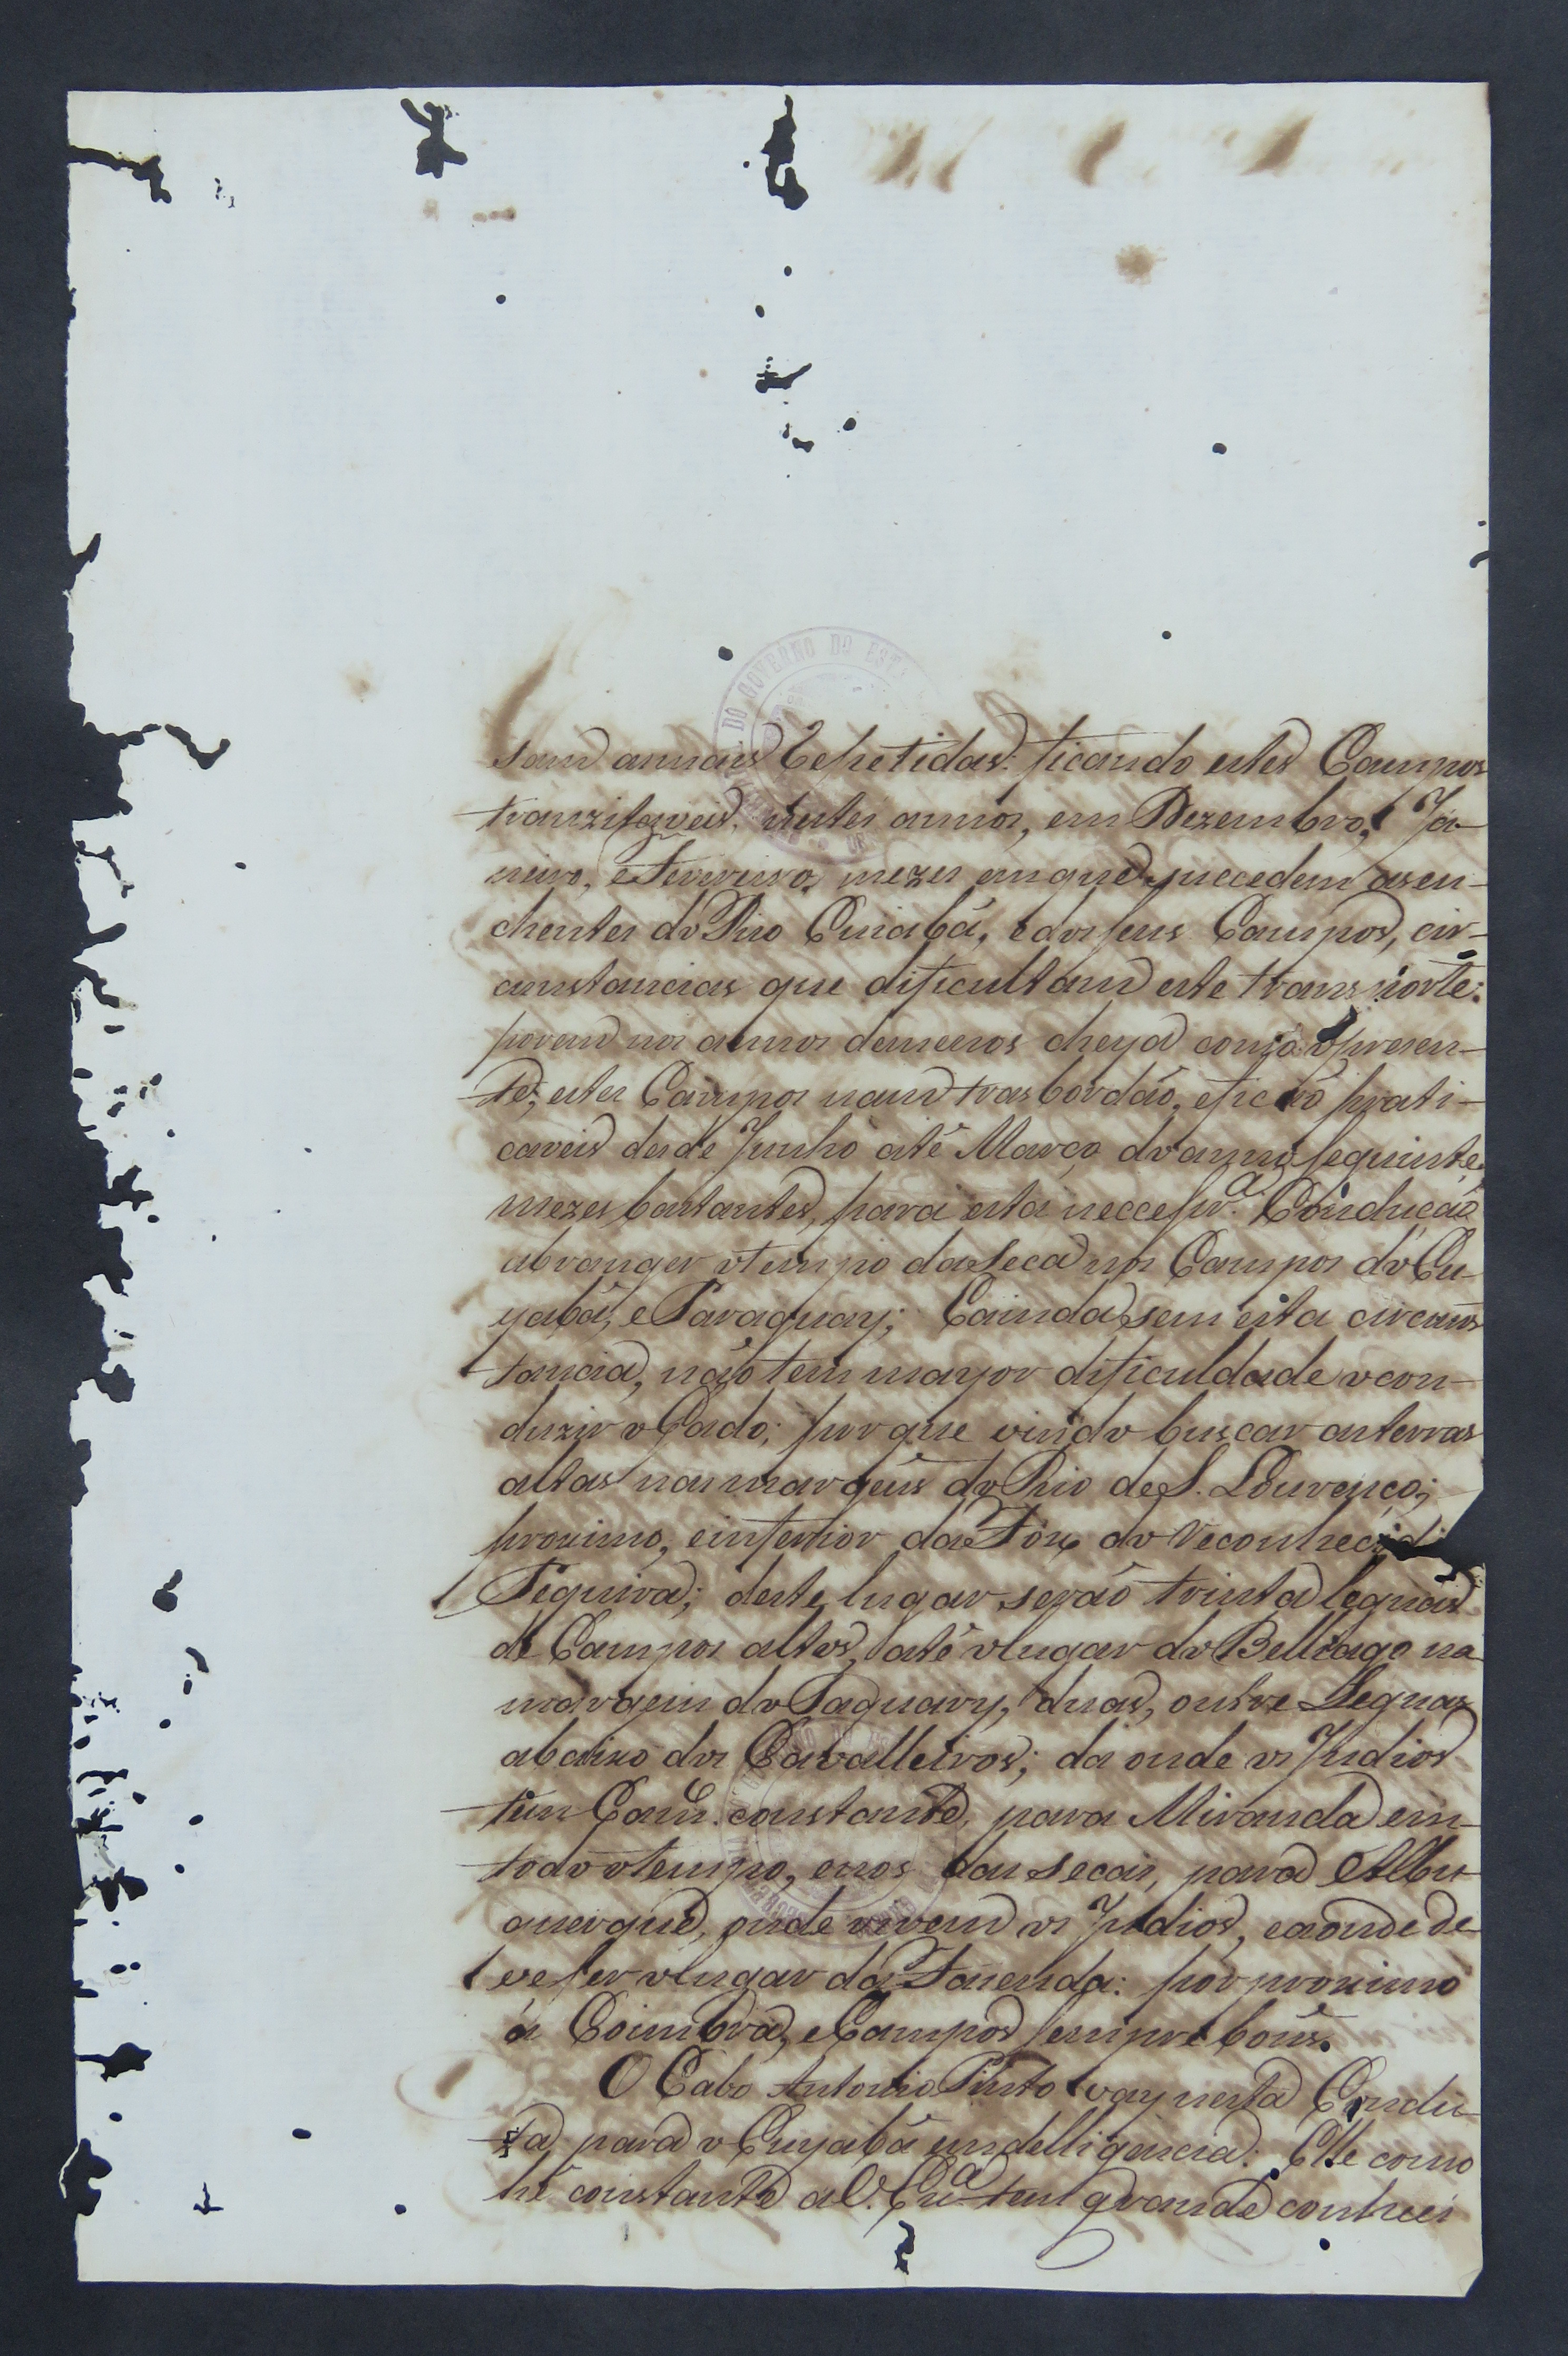 sam annais Repetidas: ficando estes Campos
tranzitaveis, nestes annos, em Dezembro, Ja-
neiro, e Fevereiro, mezes em que precedem as en-
chentes do Rio Cuiabá, e dos seus Campos, cir-
cunstancias que dificultam este transporte:
porem nos annos de menos cheya como o presen-
te; estes Campos nam trasbordão, e ficão prati-
caveis desde Junho até Março do anno seguinte,
mezes bastantes, para esta neccessr.ª Conducão
abranger o tempo da Seca nos Campos do Cu-
yabá, e Paraguay; E ainda sem esta circuns
tancia, não tem mayor dificuldade o con-
duzir o Gado; por que vindo buscar as terras
altas nas margeis do Rio de S. Lourenço;
proximo, e inferior da Fóz do Reconhecido
Pequira; deste lugar serão trinta legoas
de Campos altos, até o lugar do Belliago na
margem do Taquary, duas, ou tre Legoas
abaixo dos Cavalleiros; da onde os Indios
tem Cam.º constante, para Miranda em
todo o tempo, e nos das secas, para Albu-
querque, onde vivem os Indios, e aonde de-
ve ser o lugar da Fazenda: por proximo
a Coimbra, e Campos sempre bons.
O Cabo Antonio Pinto vay nesta Condu-
ta para o Cuyabá em delligencia: Elle como
hé constante a V. Ex.ª tem grande conheci